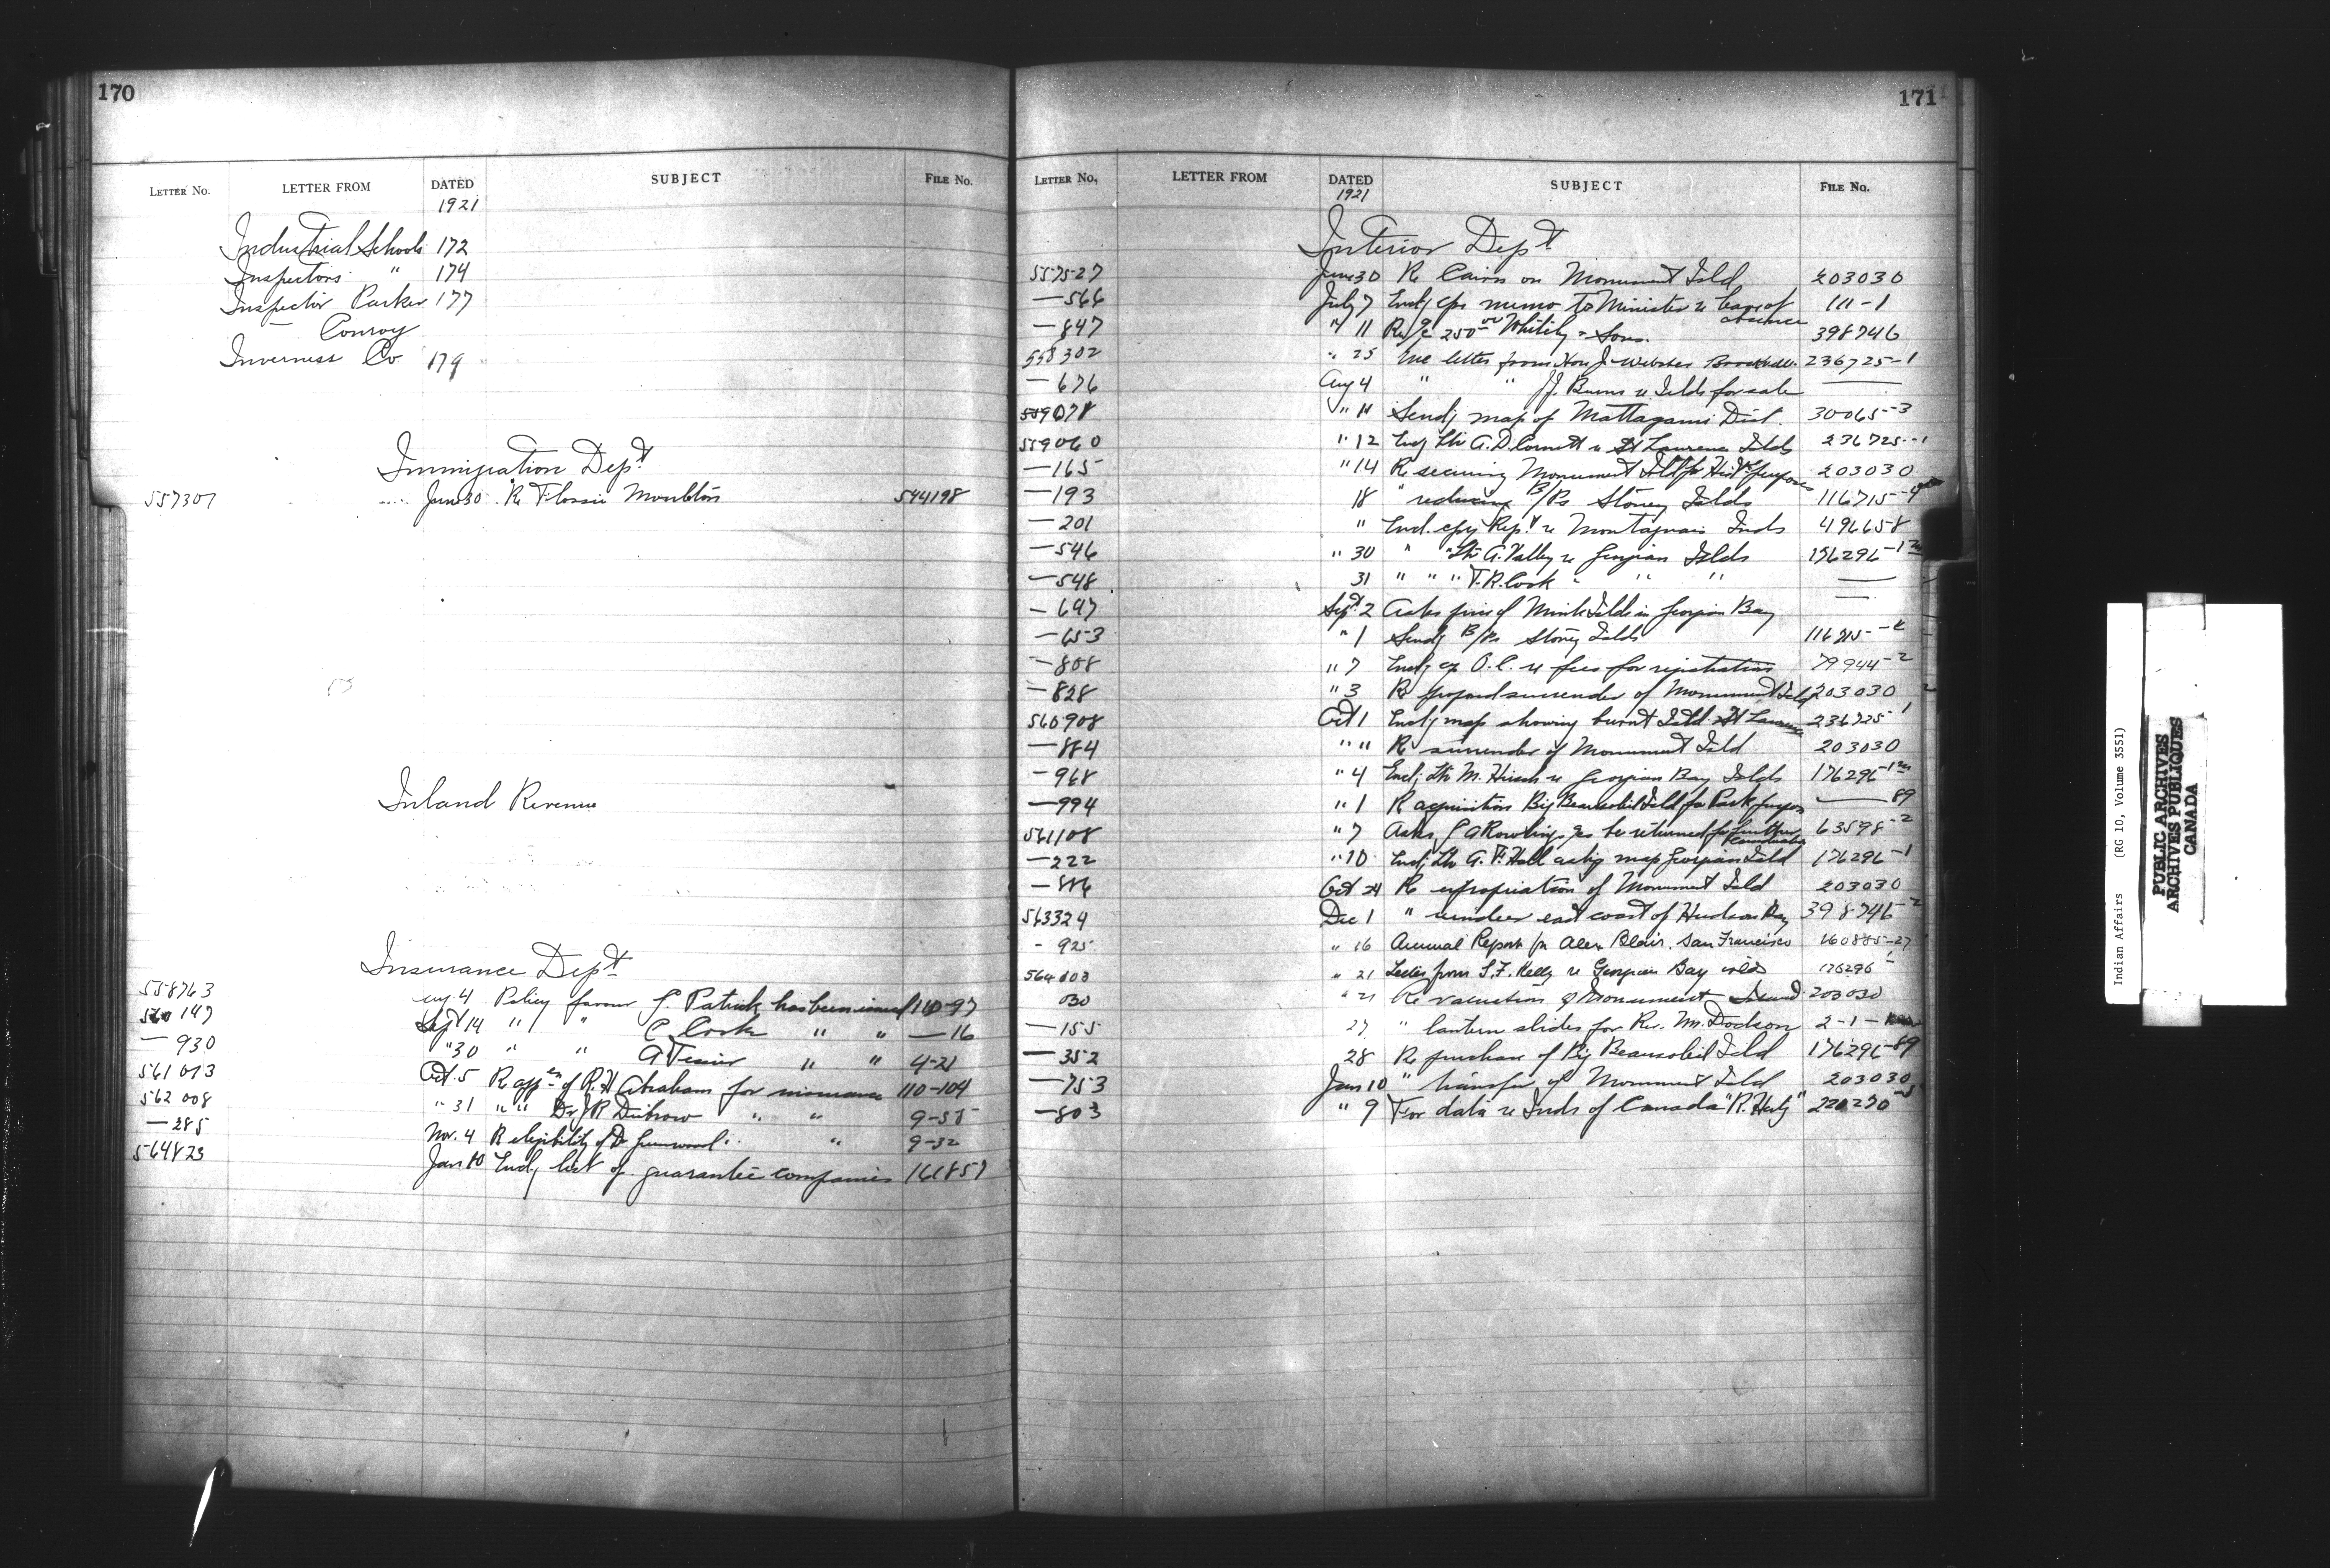 170
LETTER No. LETTER FROM DATED SUBJECT FILE No.
1921
Industrial Schools 172
Inspectors " 174
Inspector Parker 177
— Conroy
Inverness Co 179
Immigration Dept
557307 June 30 Re Flossie Moulton 544198
Inland Revenue
Insurance Dept
558763 Aug 4 Policy favour J Patrick has been issued 110-97
560147 Sept 14 " " C Cook " " —16
—930 "30 " " A Texier " " 4-21
561073 Oct. 5 Re appn of R.H Abraham for insurance 110-104
562008 " 31 " " Dr J P " " 9-
—285 Nov. 4 Re eligibility of Dr Greenwood " " 9-32
564823 Jan 10 Encl'g list of guarantee companies 161857
171
LETTER No. LETTER FROM DATED SUBJECT FILE No.
1921
Interior Dept
557527 June 30 Re Cairn on Monument Isld 203030
—566 July 7 Encl'g cps memo to Minister re leave of absence 111-1
—847 " 11 Re 250 00 & Sons. 398746
558302 " 25 letter from Hon J. Webster 236725-1
—676 Aug 4 " " J.J. Burns re Islds for sale ——
559078 " 11 Send'g map of Mattagami Dist. 30065-3
559060 " 12 Encl'g Ltr A.D. Cornett re St Lawrence Islds 236725-1
—165 " 14 Re securing Monument Isld for Hist'l purposes 203030
—193 18 " reducing B/Ps Stoney Islds 116715-
—201 " Encl. cpy Rep't re Montagnais Inds 49665-8
—546 " 30 " "Ltr A. Valley re Georgian Islds 176296-1
—548 31 " " " T.R. Cook " " " ——
—697 Sept 2 Asks price of Mink Islds in Georgian Bay —
—653 " 1 Send'g B/Ps Stoney Islds
—808 " 7 Encl'g cp O.C. re fees for registration 79944-2
—828 " 3 Re proposed surrender of Monument Isld 203030
560908 Oct 1 Encl'g map showing burnt Isld St Lawrence 236725-1
—884 " " Re surrender of Monument Isld 203030
—968 " 4 Encl'g Ltr M. Hirsch re Georgian Bay Islds 176296-1
—994 " 1 Re acquisition Big Beausoleil Isld for Park purposes ——89
561108 " 7 Asks be returned for further 63598-2
—222 " 10 Encl'g Ltr A.F. Hall ask'g map Georgian Isld 176296-1
—886 Oct 24 Re expropriation of Monument Isld 203030
563324 Dec 1 " reindeer east coast of Hudson Bay 398746-2
- 925 " 16 Annual Report for Alex Blair. San Francisco 160885-27
564003 " 21 Letter from S.F. Kelly re Georgian Bay islds 176296-1
030 " 21 Re valuation of Monument Island 203030
—155 27 " lantern slides for Rev. Wm. Dodson 2-1-
—352 28 Re purchase of Big Beausoleil Isld 176296-89
—753 Jan 10 " transfer of Monument Isld 203030
—803 " 9 For data re Inds of Canada "R. "
Indian Affairs (RG 10, Volume 3551)
PUBLIC ARCHIVES
ARCHIVES PUBLIQUES
CANADA